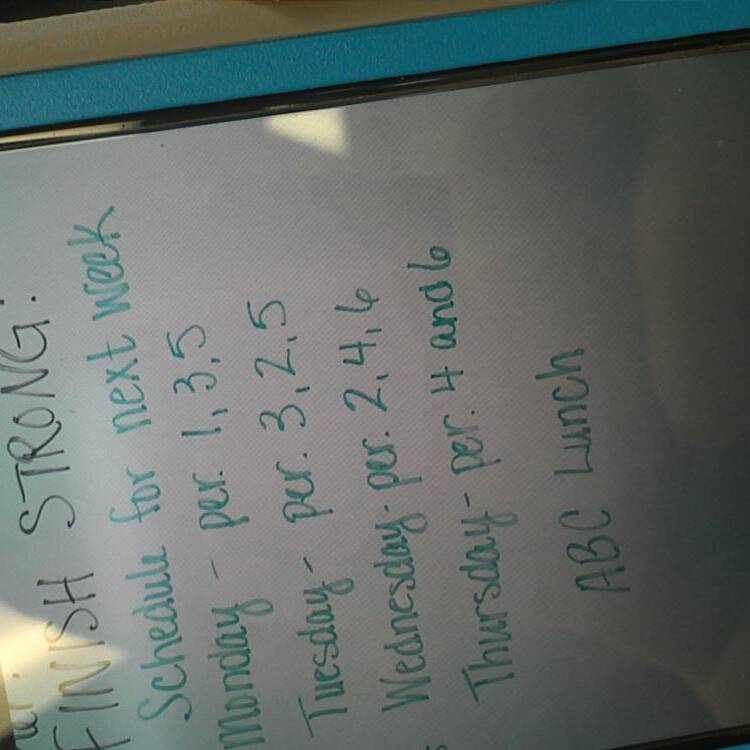 FINISH STRONG:
Schedule for next week
Monday - per. 1, 3, 5
Tuesday - per. 3, 2, 5
Wednesday- per. 2, 4, 6
Thursday- per. 4 and 6
ABC Lunch